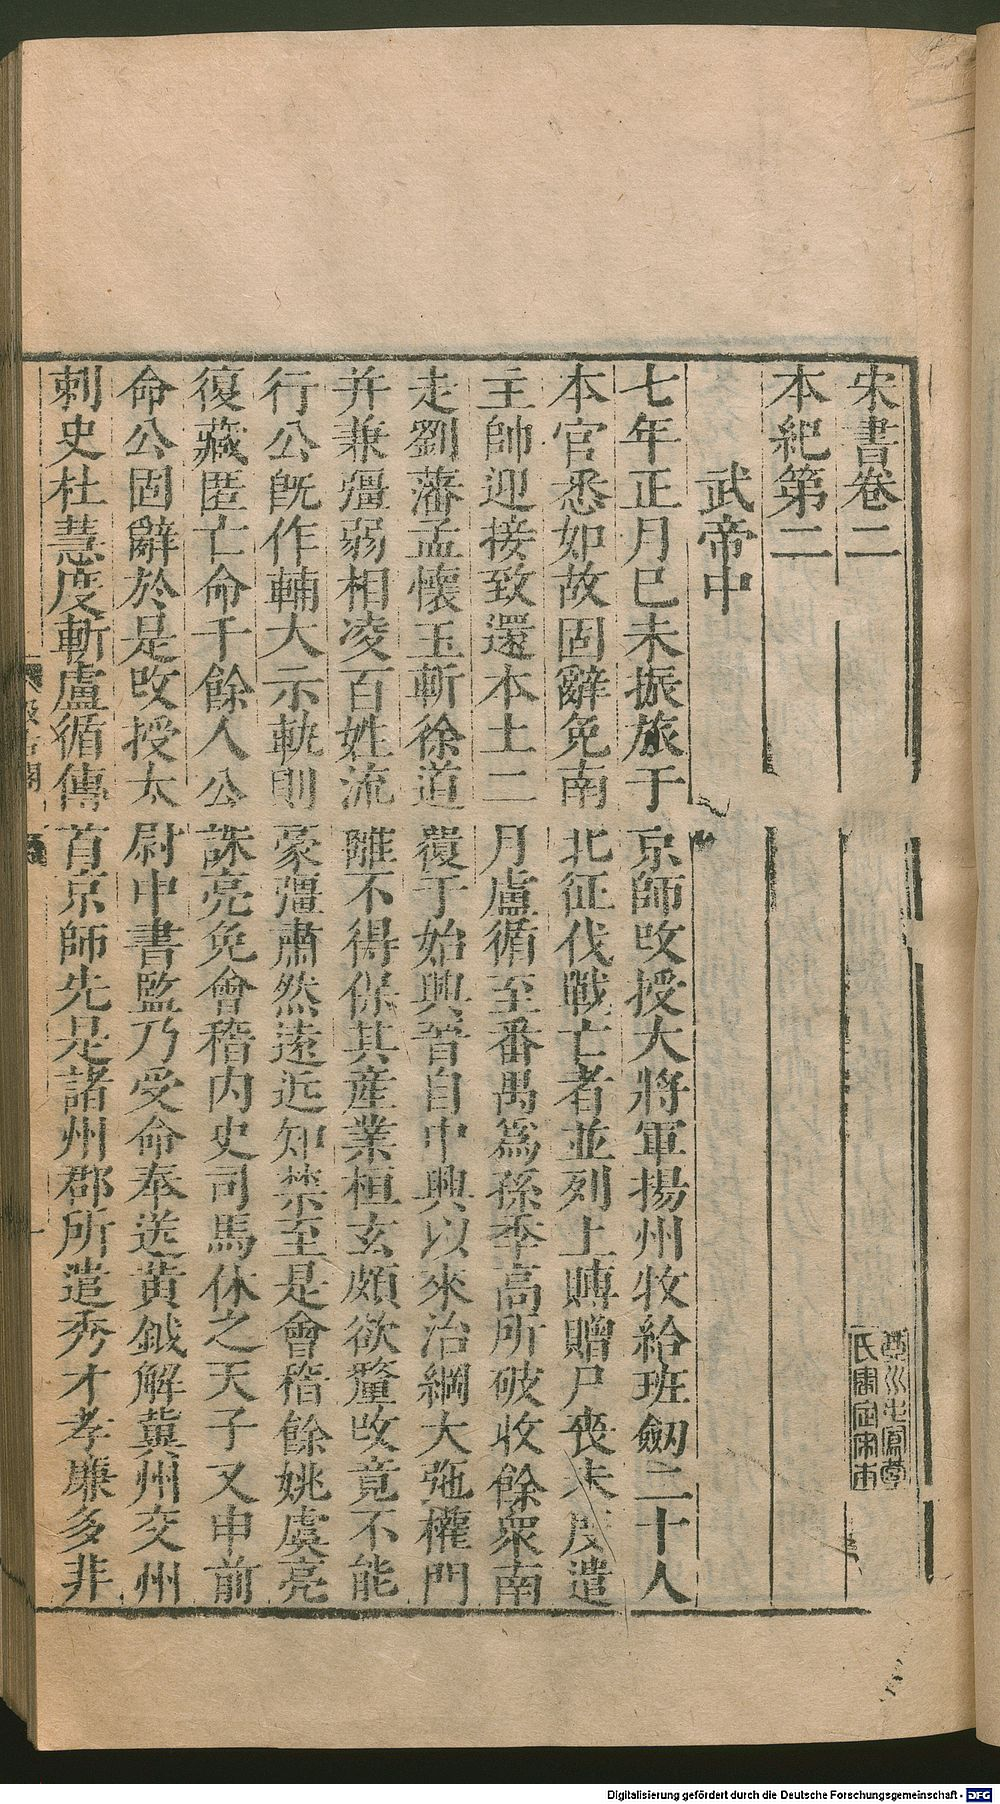 宋書卷二
本紀第二
武帝中
七年正月己未振旅于京師改授大將軍揚州牧給班劒二十人
本官悉如故固辭免南北征伐戰亡者並列上賻贈尸喪未反遣
主帥迎接致還本土二月盧循至番禺爲孫季高所破收餘衆南
走劉藩孟懷玉斬徐道覆于始興晉自中興以來治綱大弛權門
并兼彊弱相凌百姓流離不得保其產業桓玄頗欲釐改竟不能
行公旣作輔大示軌則豪彊肅然遠近知禁至是會稽餘姚虞亮
復藏匿亡命千餘人公誅亮免會稽內史司馬休之天子又申前
命公固辭於是改授太尉中書監乃受命奉送黃鉞解冀州交州
刺史杜慧度斬盧循傳首京師先是諸州郡所遣秀才孝廉多非
汲古閣
一
氏審定宋本
Digitalisierung gefördert durch die Deutsche Forschungsgemeinschaft - DFG